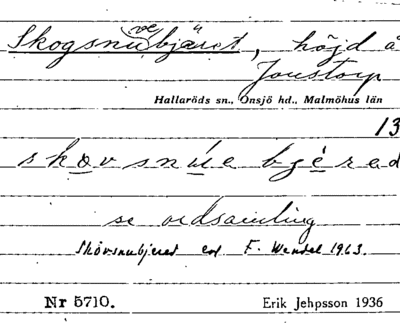 Skogsnuvebjäret, höjd å
Jonstorp
Hallaröds sn., Onsjö hd., Malmöhus län
13
skovsnúe bjéred
se ordsamling
Skovsnubjeret enl F. Wendel 1963.
Nr 5710.
Erik Jehpsson 1936